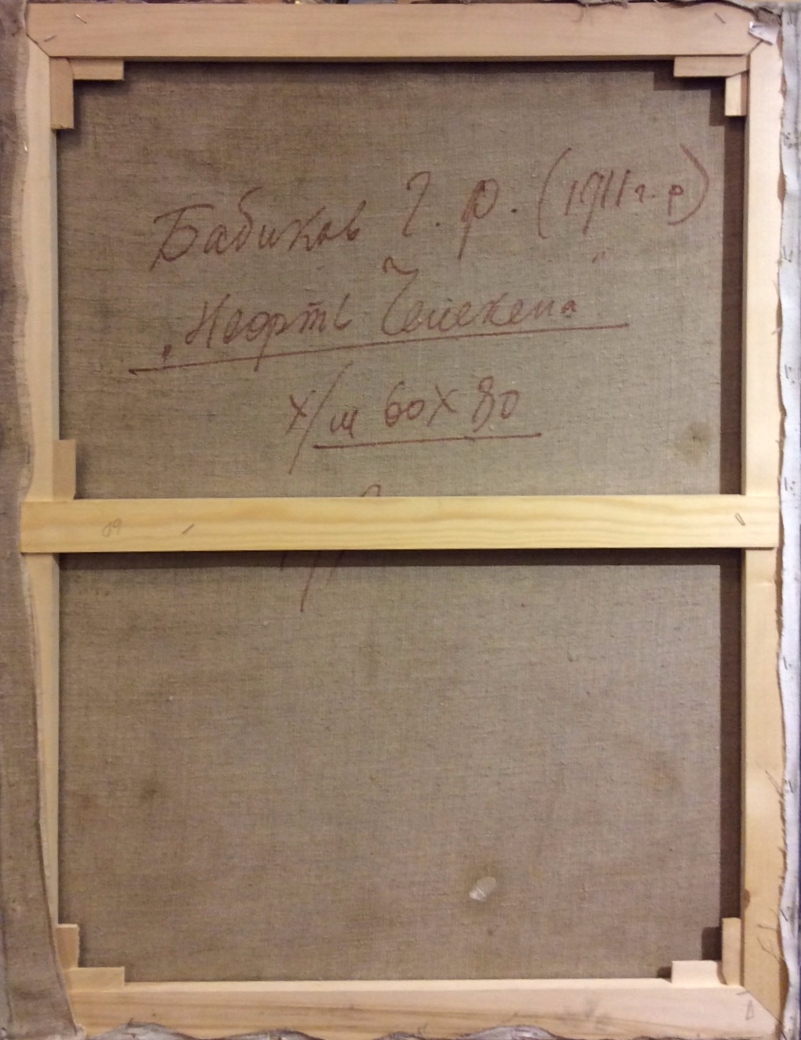 Бабиков Г. Р. (1911 г. р)
„Нефть Челекена"
х/м 60х80